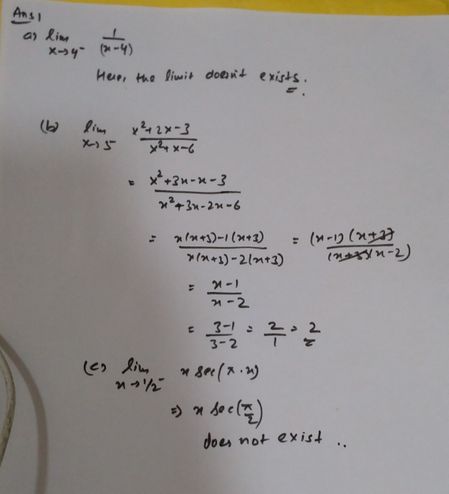 Ans 1
a) lim x→4⁻ 1/(x-4)
Here, the limit doesn't exists.
(b) lim x→5 x²+2x-3 / x²+x-6
= x²+3x-x-3 / x²+3x-2x-6
= x(x+3)-1(x+3) / x(x+3)-2(x+3) = (x-1)(x+3) / (x+3)(x-2)
= x-1 / x-2
= 3-1 / 3-2 = 2/1 = 2
(c) lim x→1/2⁻ x sec(π·x)
⇒ x sec(π/2)
does not exist ..